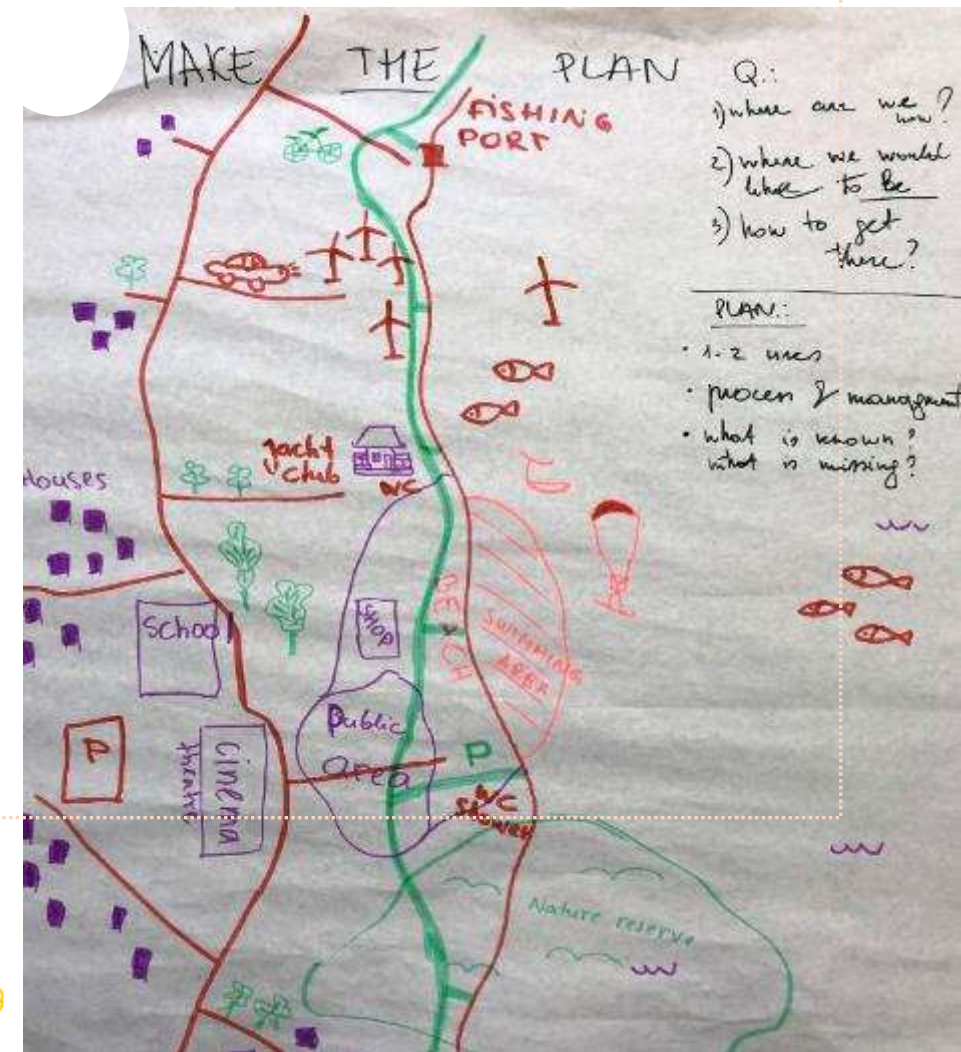 MAKE THE PLAN
Q.:
1) where are we
now?
2) where we would
to Be
3) how to get
there?
PLAN:
• 1-2 uses
• process & managment
• what is known?
what is missing?
FISHING
PORT
Yacht
Club
WC
Houses
School
SHOP
BEACH
SWIMMING
AREA
Public
area
P
P
Cinema
theatre
WC
Nature reserve